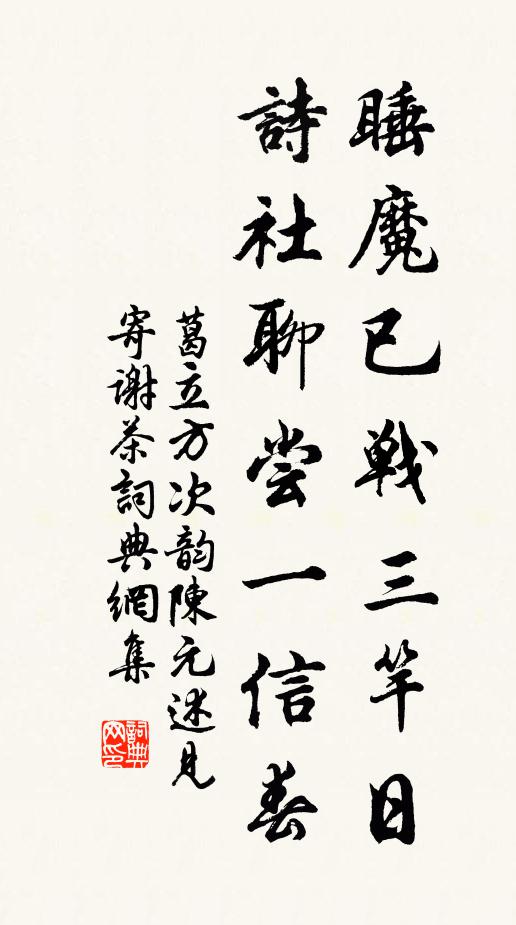 睡魔已戰三竿日
詩社聊嘗一信春
葛立方次韵陳元述見
寄谢茶詞典網集
詞典网印